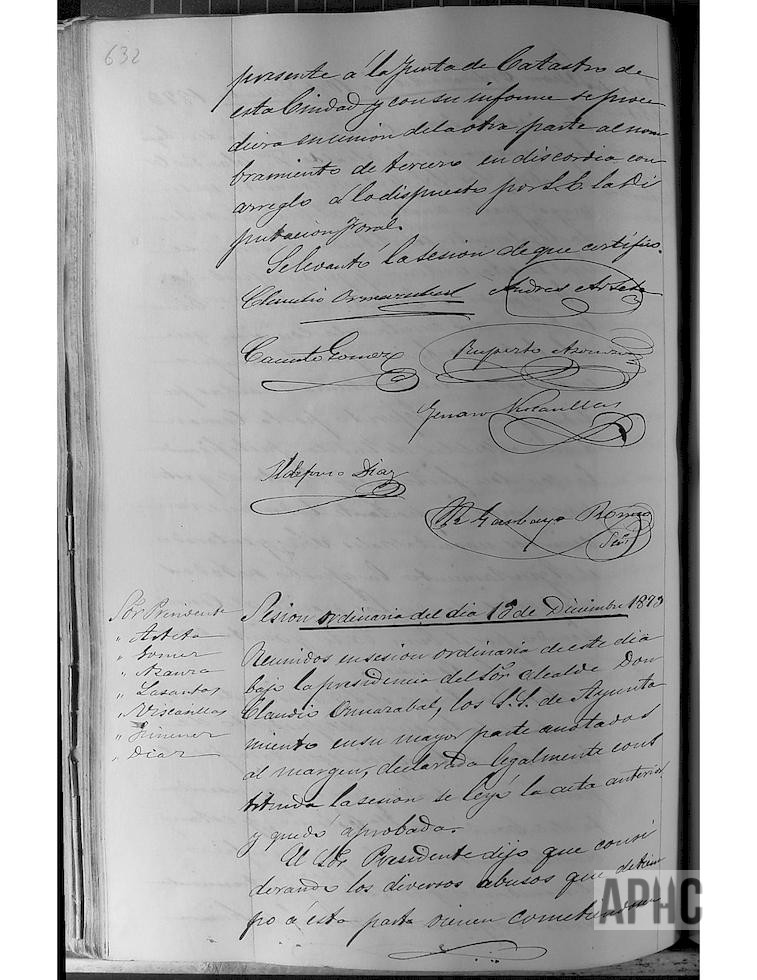 632
presente á la Junta de Catastro de
esta Ciudad y con su informe se proce
diera en union de la otra parte al nom
bramiento de tercero en discordia con
arreglo á lo dispuesto por S.E. la Di
putacion Foral.
Se levantó la sesion de que certifico.
Claudio Armarabal Andres Asteta
Canuto Gomez Ruperto Azanza
Genaro Viscasillas
Ildefonso Diaz
Romeo
Srio
Sesion ordinaria del dia 13 de Diciembre 1893
Sór Presidente
" Asteta
" Gomez
" Azanza
" Lasantas
" Viscasillas
" Jimenez
" Diaz
Reunidos en sesion ordinaria de este dia
bajo la presidencia del Sór Alcalde Don
Claudio Armarabal, los S.S. de Ayunta
miento en su mayor parte anotados
al margen, declarada legalmente cons
tituida la sesion se leyó la acta anterior
y quedó aprobada.
El Sór Presidente dijo que consi
derando los diversos abusos que de tiem
po á esta parte vienen cometiendose
APHC